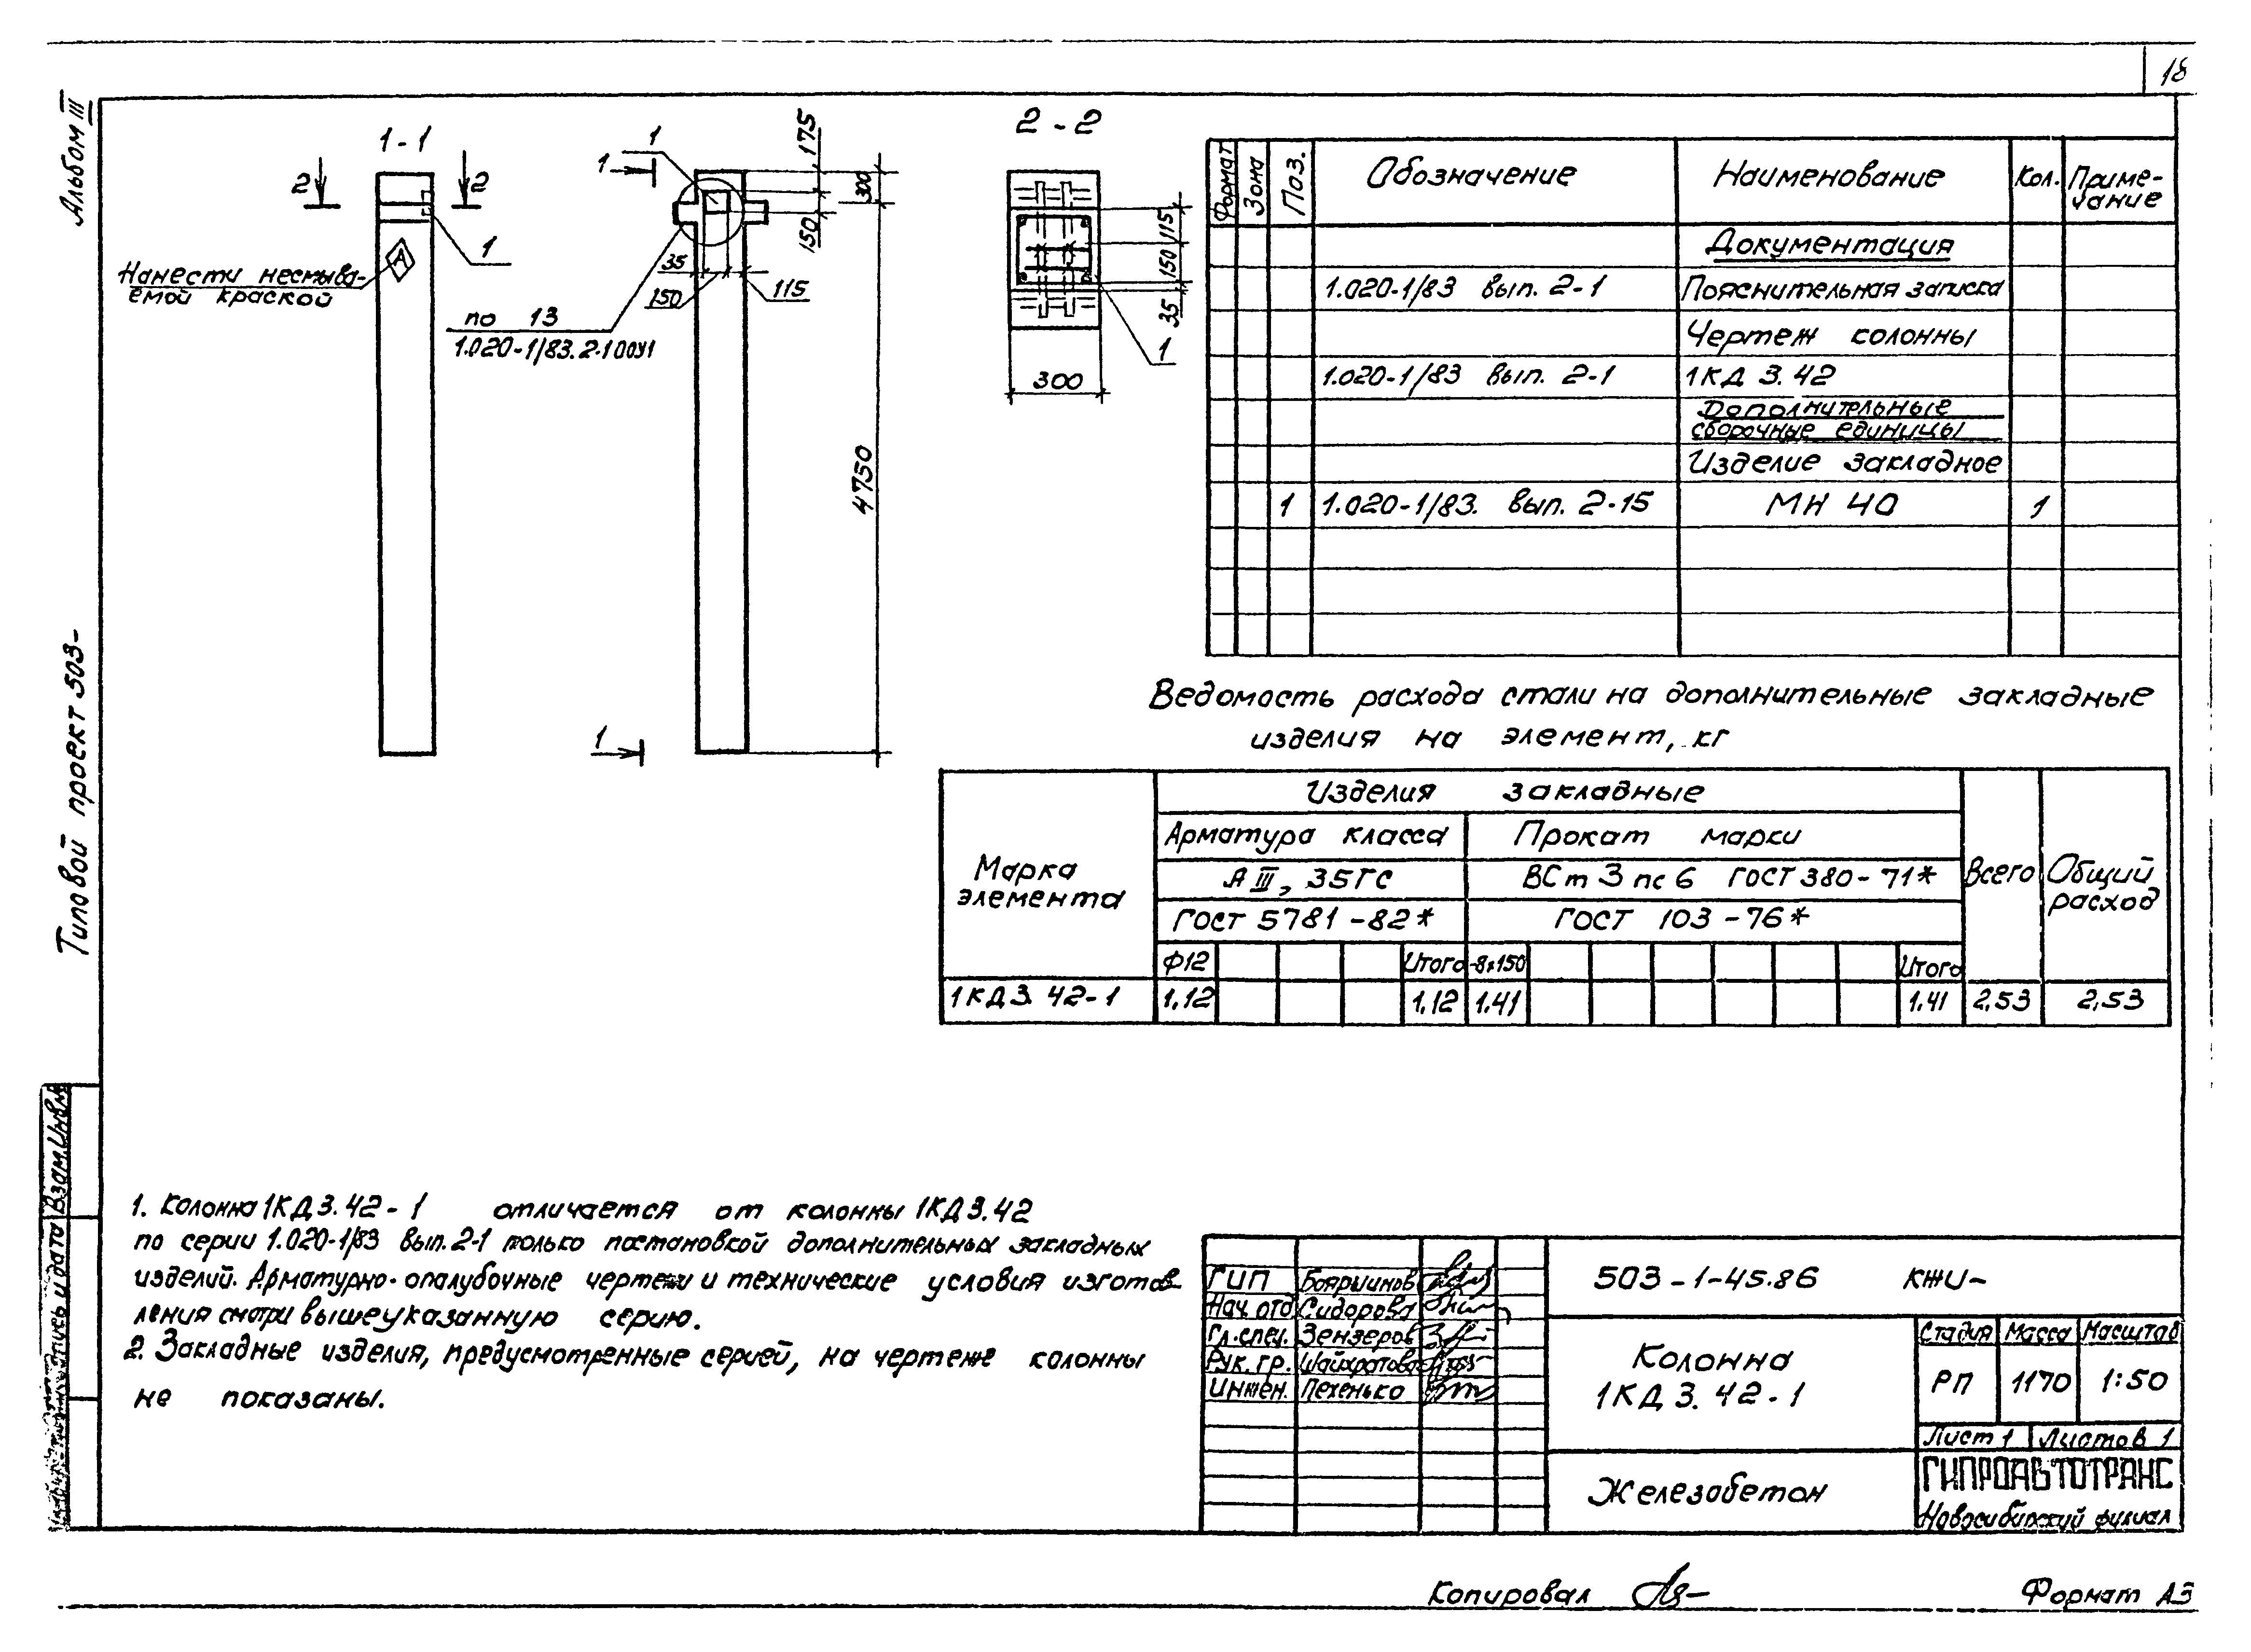 18
Альбом III
Типовой проект 503-
Взам.Инв.№
1-1
2 2
1
А
Нанести несмыва-
емой краской
1
1
175
300
150
35
150
115
по 13
1.020-1/83.2-1 00У1
4750
1
2-2
115
150
35
1
300
Формат Зона Поз. Обозначение Наименование Кол. Приме-
чание
Документация
1.020-1/83 вып. 2-1 Пояснительная записка
Чертеж колонны
1.020-1/83 вып. 2-1 1КД 3.42
Дополнительные
сборочные единицы
Изделие закладное
1 1.020-1/83. вып. 2-15 МН 40 1
Ведомость расхода стали на дополнительные закладные
изделия на элемент, кг
Марка
элемента
Изделия закладные
Арматура класса Прокат марки
А III, 35ГС ВСт 3 пс 6 ГОСТ 380-71* Всего Общий
расход
ГОСТ 5781-82* ГОСТ 103-76*
Ф12 Итого -8х150 Итого
1КД3.42-1 1,12 1,12 1,41 1,41 2,53 2,53
1. Колонна 1КД3.42-1 отличается от колонны 1КД3.42
по серии 1.020-1/83 вып. 2-1 только постановкой дополнительных закладных
изделий. Арматурно-опалубочные чертежи и технические условия изготов-
ления смотри вышеуказанную серию.
2. Закладные изделия, предусмотренные серией, на чертеже колонны
не показаны.
ГИП Бояршинов
Нач.отд Сидорова
Гл.спец. Зензеров
Рук.гр.
Инжен. Пехенько
503-1-45.86 КЖИ-
Колонна
1КД 3.42-1
Стадия Масса Масштаб
РП 1170 1:50
Лист 1 Листов 1
Железобетон
ГИПРОАВТОТРАНС
Новосибирский филиал
Копировал
Формат А3